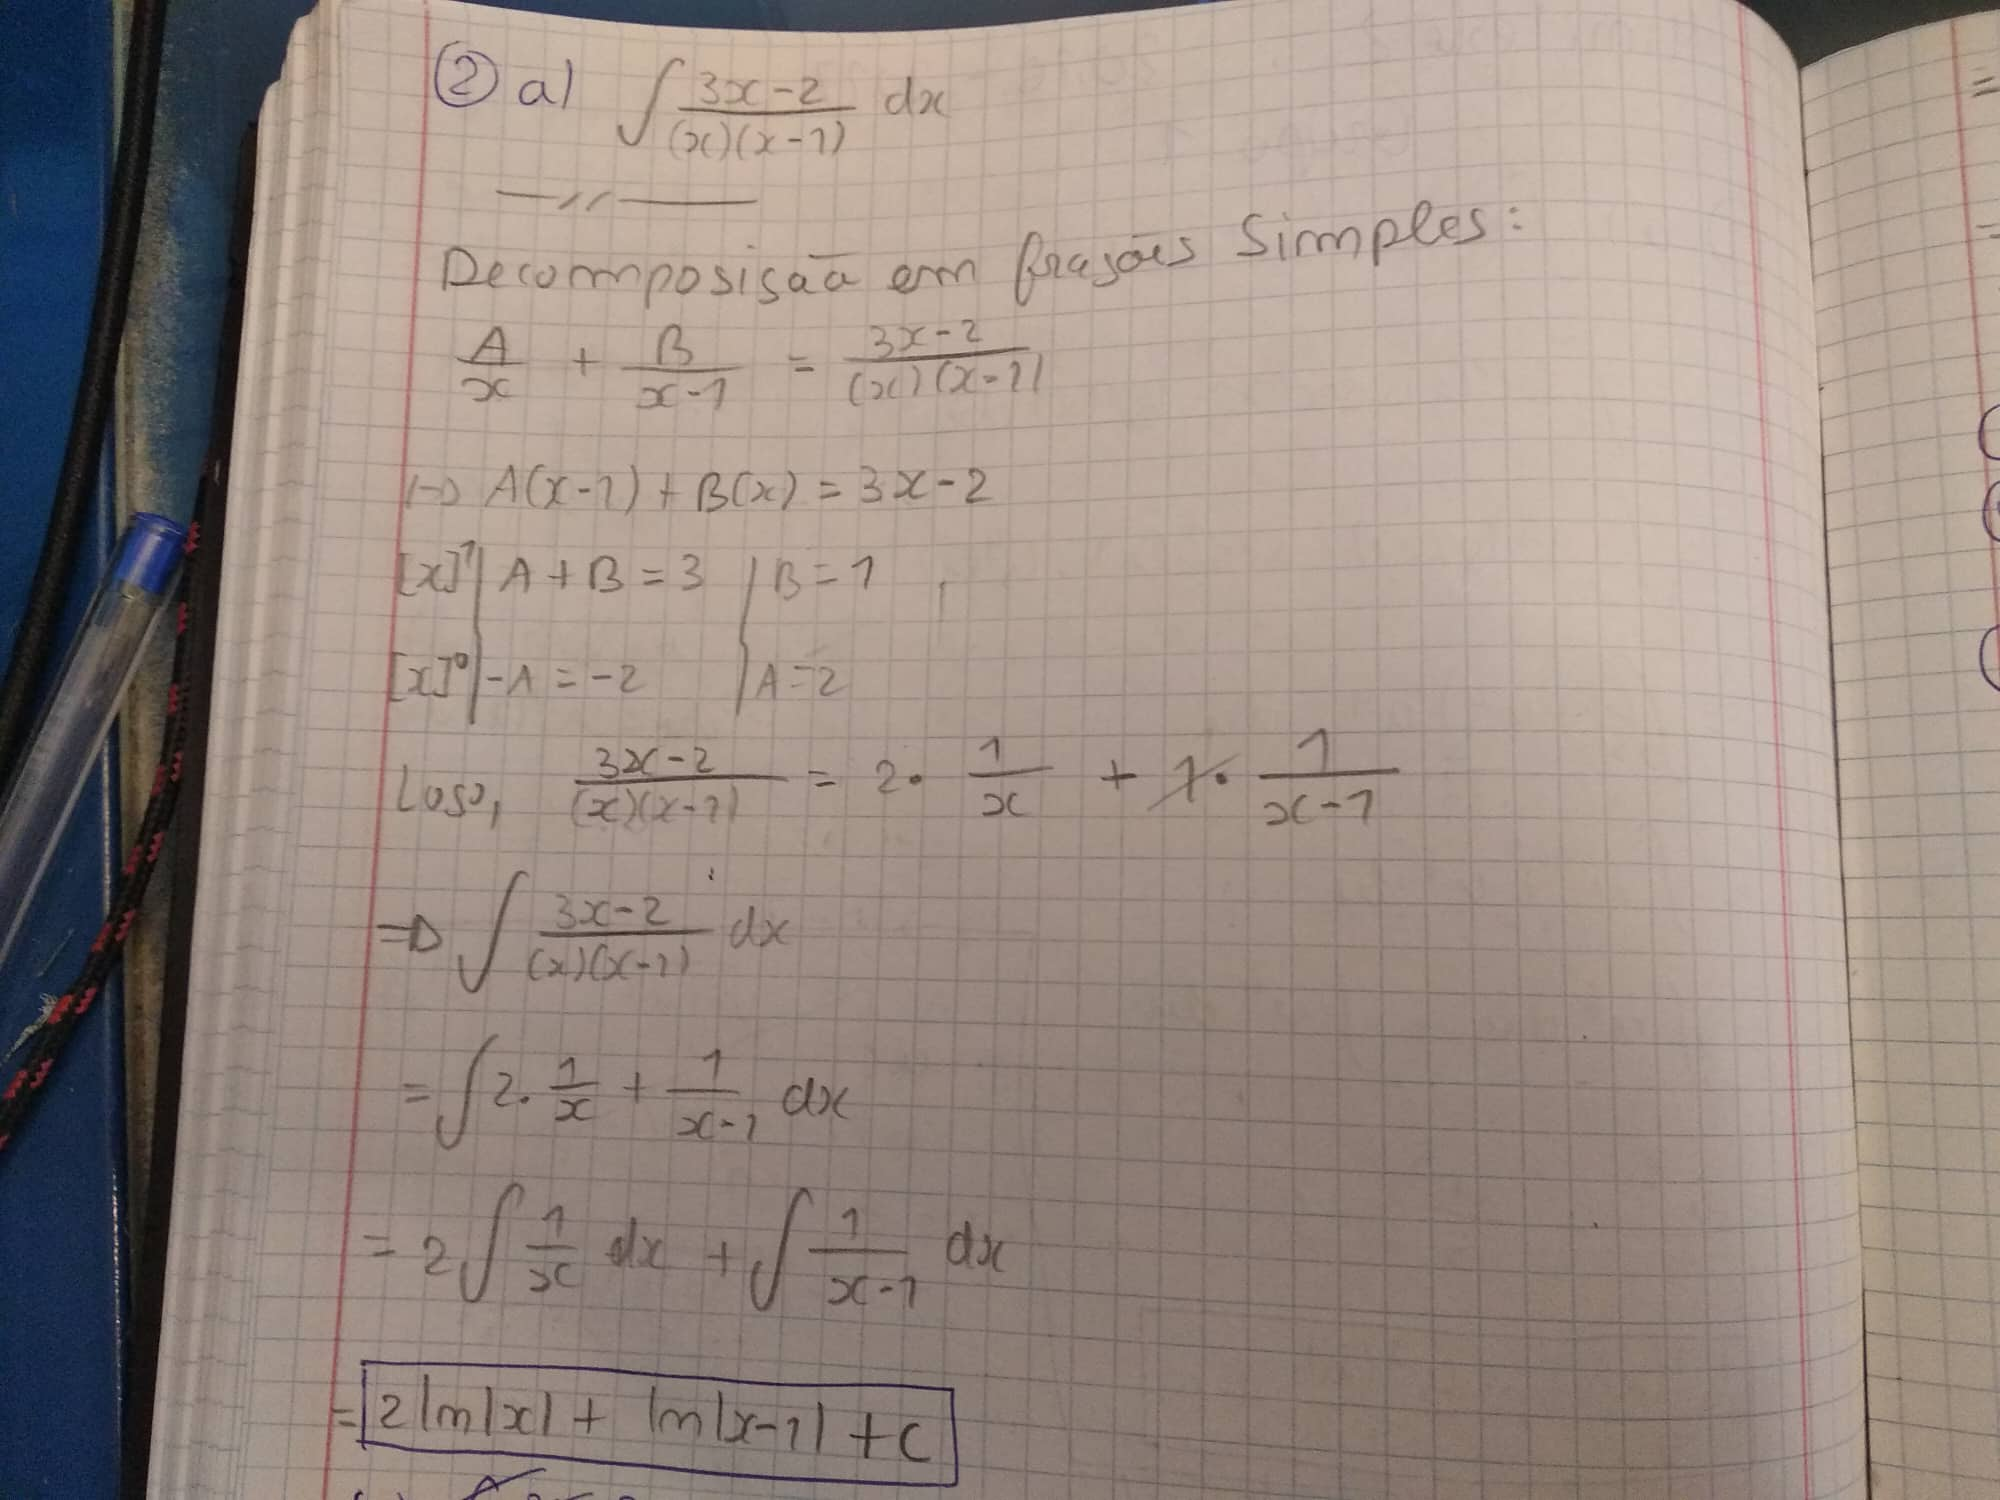 ② a) ∫ 3x-2/(x)(x-1) dx
Decomposisão em frasões Simples:
A/x + B/x-1 = 3x-2/(x)(x-1)
A(x-1) + B(x) = 3x-2
[x]¹ | A+B=3 | B=1
[x]⁰ | -A=-2 | A=2
Logo, 3x-2/(x)(x-1) = 2· 1/x + 1· 1/x-1
=> ∫ 3x-2/(x)(x-1) dx
= ∫ 2· 1/x + 1/x-1 dx
= 2 ∫ 1/x dx + ∫ 1/x-1 dx
= 2 ln|x| + ln|x-1| + c